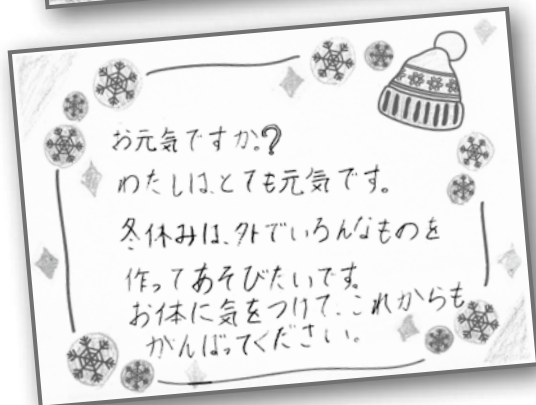 お元気ですか。?
わたしは、とても元気です。
冬休みは、外でいろんなものを
作ってあそびたいです。
お体に気をつけて、これからも
がんばってください。